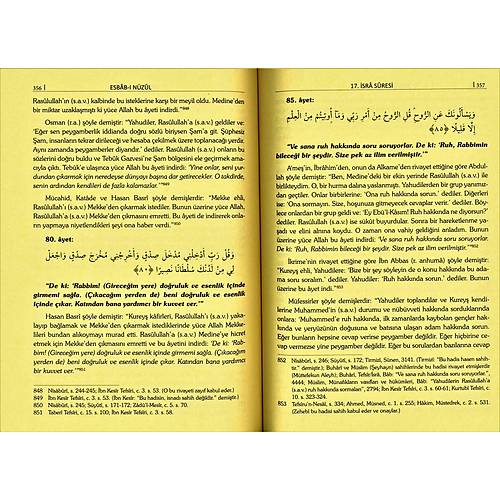 356 | ESBÂB-I NÜZÛL
Rasûlullah'ın (s.a.v.) kalbinde bu isteklerine karşı bir meyil oldu. Medine'den
bir miktar uzaklaşmıştı ki yüce Allah bu âyeti indirdi.”⁸⁴⁸
Osman (r.a.) şöyle demiştir: “Yahudiler, Rasûlullah'a (s.a.v.) geldiler ve:
‘Eğer sen peygamberlik iddianda doğru sözlü biriysen Şam'a git. Şüphesiz
Şam, insanların tekrar dirileceği ve hesaba çekilmek üzere toplanacağı yerdir.
Aynı zamanda peygamberler diyarıdır.’ dediler. Rasûlullah (s.a.v.) onların bu
sözlerini doğru buldu ve Tebük Gazvesi'ne Şam bölgesini ele geçirmek ama-
cıyla çıktı. Tebük'e ulaşınca yüce Allah bu âyeti indirdi: ‘Yine onlar, seni yur-
dundan çıkarmak için neredeyse dünyayı başına dar getirecekler. O takdirde,
senin ardından kendileri de fazla kalamazlar.’”⁸⁴⁹
Mücahid, Katâde ve Hasan Basrî şöyle demişlerdir: “Mekke ehli,
Rasûlullah'ı (s.a.v.) Mekke'den çıkarmak istediler. Bunun üzerine yüce Allah,
Rasûlullah'a (s.a.v.) Mekke'den çıkmasını emretti. Bu âyeti de indirerek onla-
rın yapmaya niyetlendikleri şeyi ona haber verdi.”⁸⁵⁰
80. âyet:
وَقُلْ رَبِّ أَدْخِلْنِي مُدْخَلَ صِدْقٍ وَأَخْرِجْنِي مُخْرَجَ صِدْقٍ وَاجْعَلْ
لِي مِنْ لَدُنْكَ سُلْطَانًا نَصِيرًا ﴿٨٠﴾
“De ki: ‘Rabbim! (Gireceğim yere) doğruluk ve esenlik içinde
girmemi sağla. (Çıkacağım yerden de) beni doğruluk ve esenlik
içinde çıkar. Katından bana yardımcı bir kuvvet ver.’”
Hasan Basrî şöyle demiştir: “Kureyş kâfirleri, Rasûlullah'ı (s.a.v.) yaka-
layıp bağlamak ve Mekke'den çıkarmak istediklerinde yüce Allah Mekke-
lileri bundan alıkoymayı murad etti. Rasûlullah'a (s.a.v.) Medine'ye hicret
etmek için Mekke'den çıkmasını emretti ve bu âyeti indirdi: ‘De ki: ‘Rab-
bim! (Gireceğim yere) doğruluk ve esenlik içinde girmemi sağla. (Çıkacağım
yerden de) beni doğruluk ve esenlik içinde çıkar. Katından bana yardımcı
bir kuvvet ver.’”⁸⁵¹
848 Nisâbûrî, s. 244-245; İbn Kesîr Tefsiri, c. 3. s. 53. (O bu rivayeti zayıf kabul eder.)
849 İbn Kesîr Tefsiri, c. 3. s. 53. (İbn Kesîr: “Bu hadisin, isnadı sahih değildir.” demiştir.)
850 Nisâbûrî, s. 245; Süyûtî, s. 171-172; Zâdü'l-Mesîr, c. 5. s. 70.
851 Taberî Tefsiri, c. 15. s. 100; İbn Kesîr Tefsiri, c. 3. s. 53.
17. İSRÂ SÛRESİ | 357
85. âyet:
وَيَسْأَلُونَكَ عَنِ الرُّوحِ قُلِ الرُّوحُ مِنْ أَمْرِ رَبِّي وَمَا أُوتِيتُمْ مِنَ الْعِلْمِ
إِلَّا قَلِيلًا ﴿٨٥﴾
“Ve sana ruh hakkında soru soruyorlar. De ki: ‘Ruh, Rabbimin
bileceği bir şeydir. Size pek az ilim verilmiştir.’”
A'meş'in, İbrâhim'den, onun da Alkame'den rivayet ettiğine göre Abdul-
lah şöyle demiştir: “Ben, Medine'deki bir ekin yerinde Rasûlullah (s.a.v.) ile
birlikteydim. O, bir hurma dalına yaslanmıştı. Yahudilerden bir grup yanımız-
dan geçti. Onlardan bir kısmı: ‘Ona ruh hakkında sorun.’ dediler. Diğerleri ise:
‘Ona sormayın. Size, hoşunuza gitmeyecek cevaplar verir.’ dediler. Böy-
lece onlardan bir grup geldi ve: ‘Ey Ebü'l-Kâsım! Ruh hakkında ne diyorsun?’
dediler. Bunun üzerine Rasûlullah (s.a.v.) sustu. Sonra ayağa kalkarak ya-
şadı ve elini alnına koydu. O zaman ona vahiy geldiğini anladım. Bunun
üzerine yüce Allah bu âyeti indirdi: ‘Ve sana ruh hakkında soru soruyorlar.
De ki: ‘Ruh, Rabbimin bileceği bir şeydir. Size pek az ilim verilmiştir.’”⁸⁵²
İkrime'nin rivayet ettiğine göre İbn Abbas (r. anhumâ) şöyle demiştir:
“Kureyş ehli, Yahudilere: ‘Bize bir şey söyleyin de o konu hakkında bu ada-
ma soru soralım.’ dediler. Yahudiler: ‘Ona ruh hakkında sorun.’ dediler. Bunun
üzerine bu âyet indi.”⁸⁵³
Müfessirler şöyle demişlerdir: “Yahudiler toplandılar ve Kureyş kendi-
lerine Muhammed'in (s.a.v.) durumu ve nübüvveti hakkında sorduklarında
onlara: ‘Muhammed'e ruh hakkında, ilk zamanlarda kaybolan gençler hakkın-
da ve yeryüzünün doğusuna ve batısına ulaşan adam hakkında sorun.
Eğer bunların hepsine cevap verirse peygamber değildir. Eğer hiçbirine ce-
vap vermezse yine peygamber değildir. Eğer bu sorulardan bazılarına cevap
852 Nisâbûrî, s. 246; Süyûtî, s. 172; Tirmizî, Sünen, 3141. (Tirmizî: “Bu hadis hasen sahih-
tir.” demiştir.); Buhârî ve Müslim (Şeyhayn) sahihlerinde bu hadisi rivayet etmişlerdir
(Müttefekun Aleyh); Buhârî, Tefsir/İsrâ, Bâb: “Ve sana ruhtan soru soruyorlar.”,
4444; Müslim, Münafıkların vasıfları ve hükümleri, Bâb: “Yahudilerin Rasûlullah'a
(s.a.v.) ruh hakkında sormaları”, 2794; İbn Kesîr, c. 3. s. 60-61; Kurtubî Tefsiri, c.
10. s. 323-324.
853 Tefsîru'n-Nesâî, s. 334; Ahmed, Müsned, c. 1. s. 255; Hâkim, Müstedrek, c. 2. s. 531.
(Zehebî bu hadisi sahih kabul eder ve onaylar.)